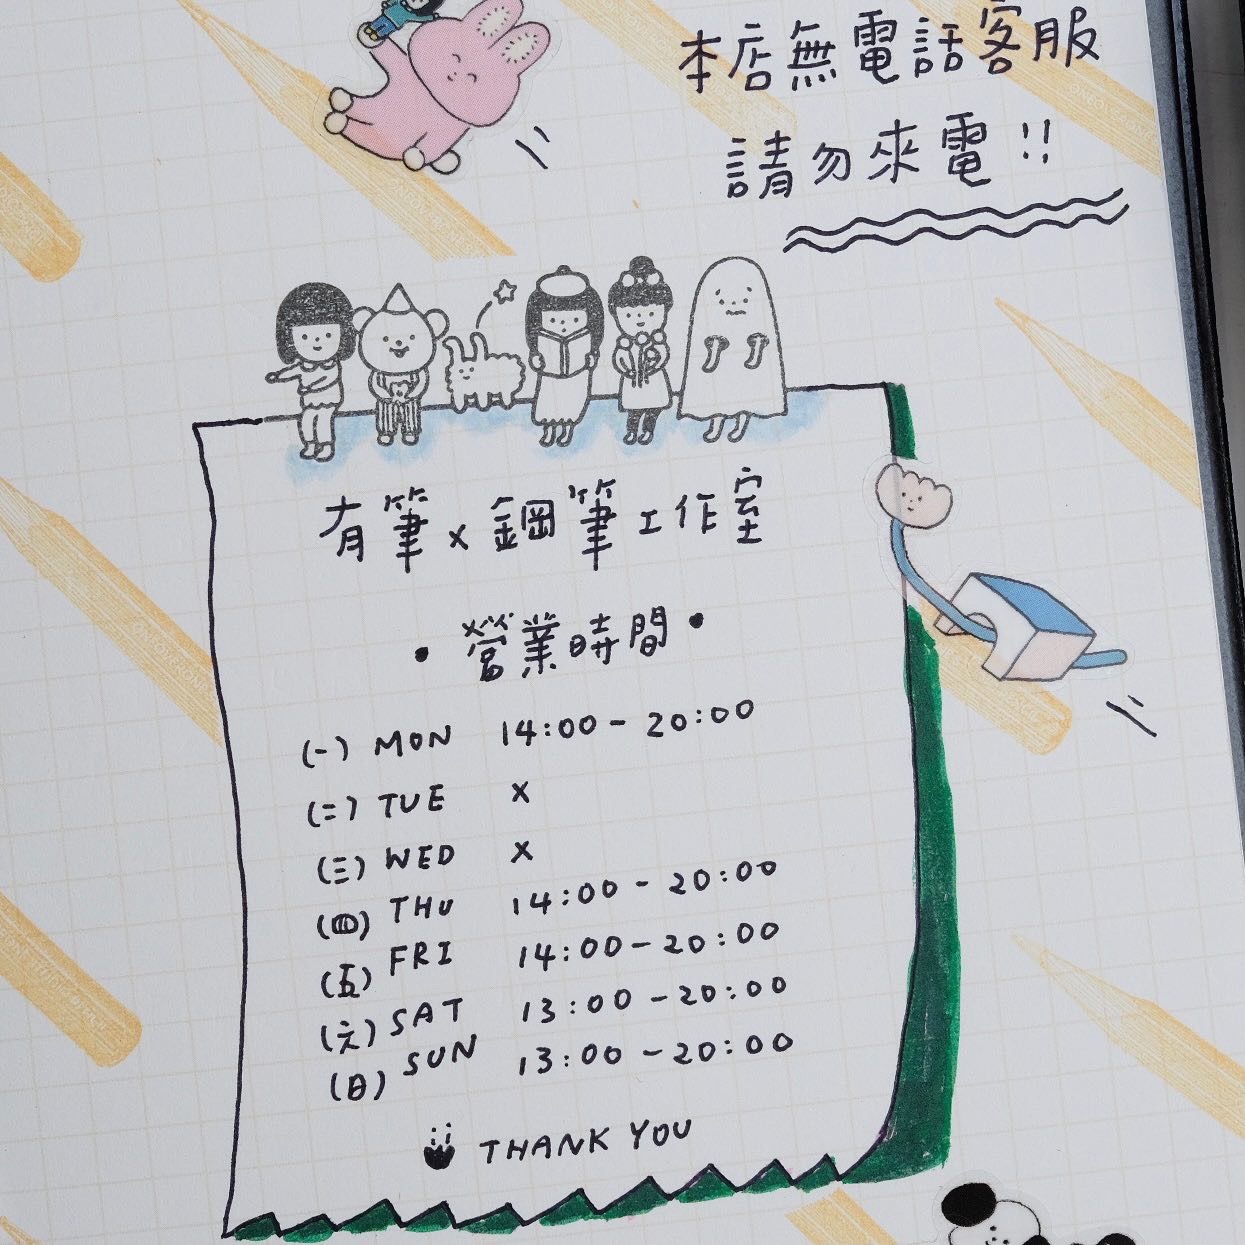 本店無電話客服
請勿來電!!
有筆×鋼筆工作室
•營業時間•
(一) MON 14:00-20:00
(二) TUE X
(三) WED X
(四) THU 14:00-20:00
(五) FRI 14:00-20:00
(六) SAT 13:00-20:00
(日) SUN 13:00-20:00
THANK YOU